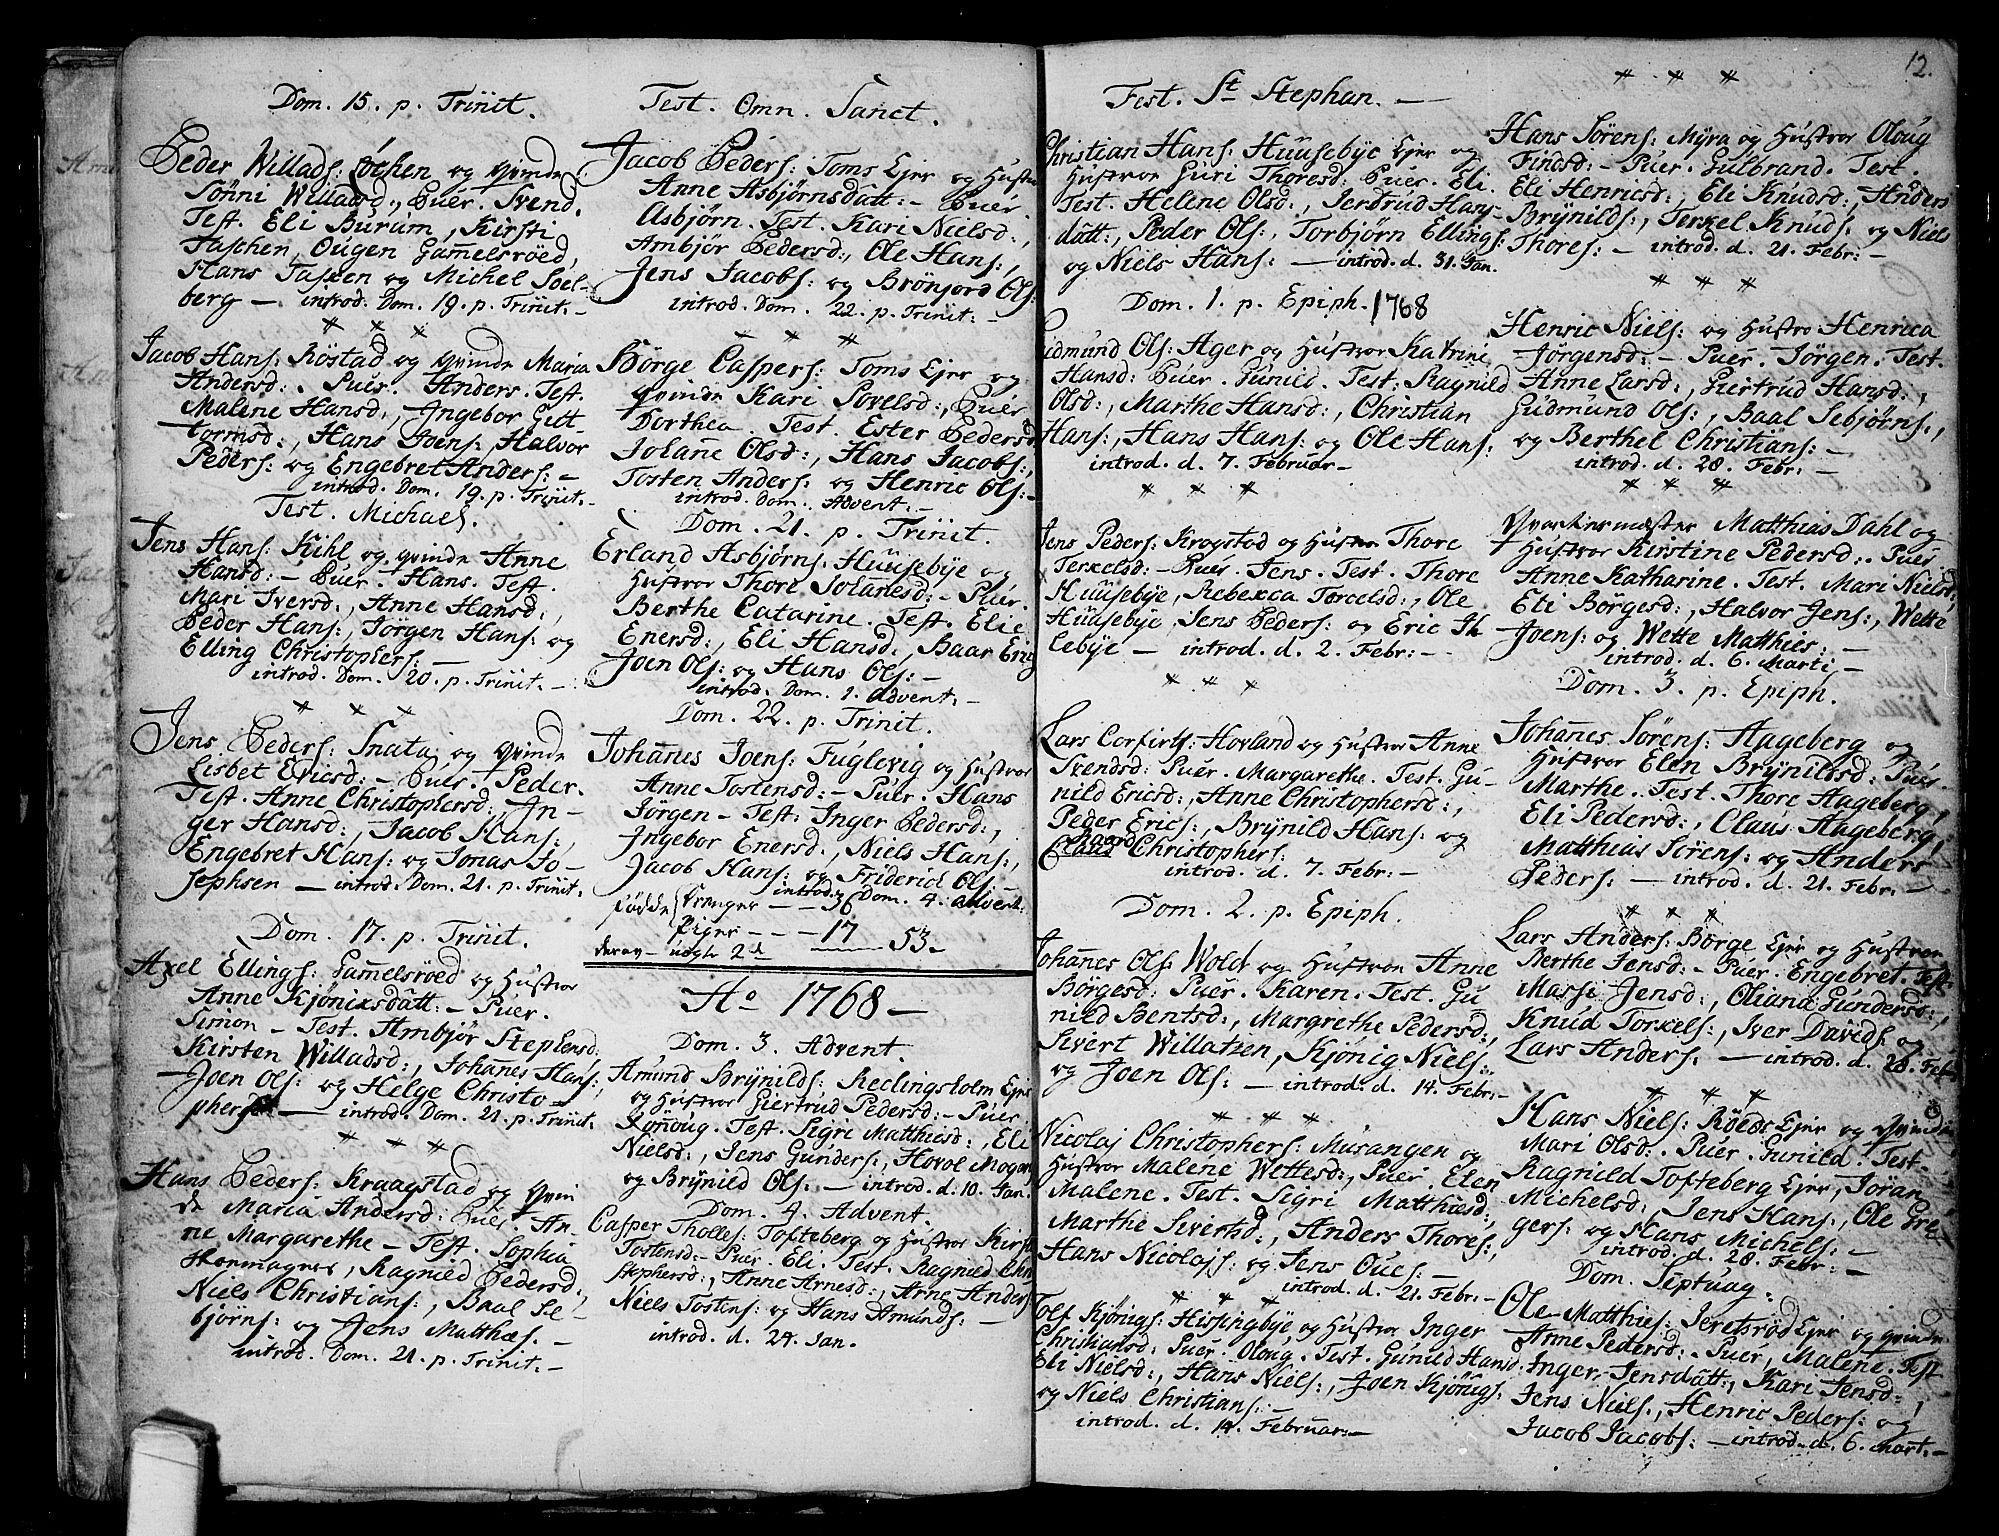 Dom. 15. p. Trinit.
Peder Willads: Løchen og qvinde
Sønni Willaasd., Puer. Svend.
Test. Eli Burum, Kirsti
Taschen, Ougen Gamelsrøed,
Hans Tasken og Michel Soel-
berg — introd. Dom. 19. p. Trinit. –
Jacob Hans: Røstad og qvinde Maria
Andersd:. Puer. Anders. Test.
Malene Hansd:, Ingebor Gut-
tormsd:, Hans Joens: Halvor
Peders: og Engebret Anders: –
introd. Dom. 19. p. Trinit. –
Fest. Michael.
Jens Hans: Kihl og qvinde Anne
Hansd: – Puer – Hans. Test.
Mari Iversd:, Anne Hansd:,
Peder Hans:, Jørgen Hans: og
Elling Christophers: –
introd. Dom. 20. p. Trinit. –
Jens Peders: Snata og qvinde
Lisbet Ericsd: – Puer. Peder.
Test. Anne Christophersd:, In-
ger Hansd:, Jacob Hans:,
Engebret Hans: og Jonas Jo-
sephsen — introd. Dom. 21. p. Trinit.
Dom. 17. p. Trinit.
Axel Ellings: Gamelsrøed og Hustroe
Anne Kjønixsdatt: – Puer.
Simon – Test. Ambjør Stephensd:
Kirsten Willadsd:, Johanes Hans:,
Joen Ols: og Helge Christo-
phers: — introd. Dom. 21. p. Trinit.
Hans Peders: Kraagstad og qvin
de Maria Andersd: Puer. An-
ne Margarethe – Test. Sophia
Ragnild Pedersd:,
Niels Christians:, Baal Se-
bjørns: og Jens Matthæs. –
introd. Dom. 21. p. Trinit. –
Fest. Omn. Sanct.
Jacob Peders: Toms Ejer og Hustro
Anne Asbjørnsdatt: – Puer.
Asbjørn. Test. Kari Nielsd:,
Ambjør Pedersd:, Ole Hans:,
Jens Jacobs: og Brønjord Ols:
introd. Dom. 22. p. Trinit: –
Børge Caspers: Toms Ejer og
qvinde Kari Povelsd:, Puer
Dorthea. Test. Ester Pedersd
Johanne Olsd:, Hans Jacobs:,
Tosten Anders: og Henric Ols: –
introd. Dom. Advent. –
Dom. 21. p. Trinit.
Erland Asbjørns: Huusebye og
Hustroe Thore Johanesd: – Puer.
Berthe Catarine. Test. Elie
Enersd:, Eli Hansd:, Baar
Joen Ols: og Hans Ols: –
introd. Dom. 1. Advent. –
Dom. 22. p. Trinit.
Johanes Joens: Fuglevig og Hustroe
Anne Tostensd: – Puer. Hans
Jørgen – Test: Inger Pedersd:,
Ingebor Enersd:, Niels Hans:,
Jacob Hans: og Friderich Ols: –
introd. Dom. 4. Advent:
Fødde Drenger — 36
Piger – – – 17 — 53 –
deraf – uægte 2de
Ao 1768 –
Dom. 3. Advent.
Amund Brynilds: Reclingsholm Ejer
og Hustroe Giertrud Pedersd: – Puer
Rønnoug. Test. Sigri Matthiesd:, Eli
Nielsd:, Jens Gunders:, Hovel Mogen
og Brynild Ols: – introd. d. 10. Jan.
Dom. 4. Advent.
Casper Tholles: Tofteberg og Hustroe Kirst
Tostensd: – Puer. Eli. Test. Ragnild Chri
stophersd:, Anne Arnesd:, Arne Anders
Niels Tostens: og Hans Amunds: –
introd. d. 24. Jan.
Fest. St Stephan. —
Christian Hans: Huusebye Ejer og
Hustroe Guri Thoresd: Puer. Eli.
Test. Helene Olsd:, Jerdrud Hans-
datt:, Peder Ols:, Torbjørn Ellings:
og Niels Hans: — introd. d. 31. Jan.
Dom. 1. p. Epiph. 1768
Gudmund Ols: Ager og Hustroe Katrini
Hansd: Puer. Gunild. Test: Ragnild
Olsd:, Marthe Hansd:, Christian
Hans:, Hans Hans: og Ole Hans:
introd. d. 7. Februar –
Jens Peders: Kragstad og Hustroe Thore
Terkelsd: – Puer. Jens. Test. Thore
Huusebye, Rebekca Torcelsd:, Ole
Huusebye, Jens Peders: og Eric Th
lebye – introd. d. 2. Febr: –
Lars Corfirts: Hovland og Hustroe Anne
Svendsd: Puer. Margarethe. Test. Gu-
nild Ericsd:, Anne Christophersd:,
Peder Erics:, Brynild Hans: og
Christophers:
introd. d. 7. Febr: –
Dom. 2. p. Epiph.
Johanes Ols: Wold og Hustroe Anne
Børgesd: Puer. Karen. Test. Gu
nild Bentsd:, Margrethe Pedersd:,
Sivert Willatzen, Kjønig Niels:,
og Joen Ols: – introd. d. 14. Febr: –
Nicolaj Christophers: Musangen og
Hustroe Malene Wettesd:, Puer. Elen
Malene. Test. Sigri Matthiesd:,
Marthe Sivertsd:, Anders Thores:,
Hans Nicolajs: og Jens Oues: –
introd. d. 21. Febr: –
Tolf Kjønigs: Hissingbye og Hustroe Inger
Christiansd: Puer. Oloug. Test. Gunild Hansd.
Eli Nielsd:, Hans Niels:, Joen Kjønigs:
og Niels Christians:
introd. d. 14. Februar: –
12.
Hans Sørens: Myra og Hustroe Oloug
Findsd: – Puer. Gulbrand. Test.
Eli Henricsd:, Eli Knudsd:, Anders
Brynilds:, Terkel Knuds: og Niels
Thores: – introd. d. 21. Febr: –
Henric Niels: og Hustro Henrica
Jørgensd: – Puer. Jørgen. Test.
Anne Larsd:, Giertrud Hansd:,
Gudmund Ols:, Baal Sebjørns:,
og Berthel Christians: –
introd. d. 28. Febr: –
Qvartermæster Matthias Dahl og
Hustroe Kirstine Pedersd:. Puer.
Anne Katharine. Test. Mari Nielsd,
Eli Børgesd:, Halvor Jens:, Wette
Joens: og Wette Matthies: –
introd. d. 6. Marti –
Dom. 3. p. Epiph.
Johanes Sørens: Aageberg og
Hustroe Elen Brynildsd: Puer.
Marthe. Test. Thore Aageberg,
Eli Pedersd:, Claus Aageberg,
Matthias Sørens: og Anders
Peders: – introd. d. 21. Febr: –
Lars Anders: Børge Ejer og Hustroe
Berthe Jensd: – Puer. Engebret. Test.
Massi Jensd:, Oliana Gundersd:,
Knud Torkels:, Iver Davids: og
Lars Anders: — introd. d. 28. Febr
Hans Niels: Røeds Ejer og qvinde
Mari Olsd: Puer. Gunild. Test.
Ragnild Tofteberg Ejer, Jøran
Michelsd:, Jens Hans:, Ole Gre
gers: og Hans Michels: –
introd. d. 28. Febr: –
Dom. Septuag:
Ole Matthies: Jeretsrød Ejer og qvinde
Anne Pedersd: – Puer, Malene. Test
Inger Jensdatt:, Kari Jensd:,
Jens Niels:, Henric Peders: og
Jacob Jacobs: – introd. d. 6. Mart. –